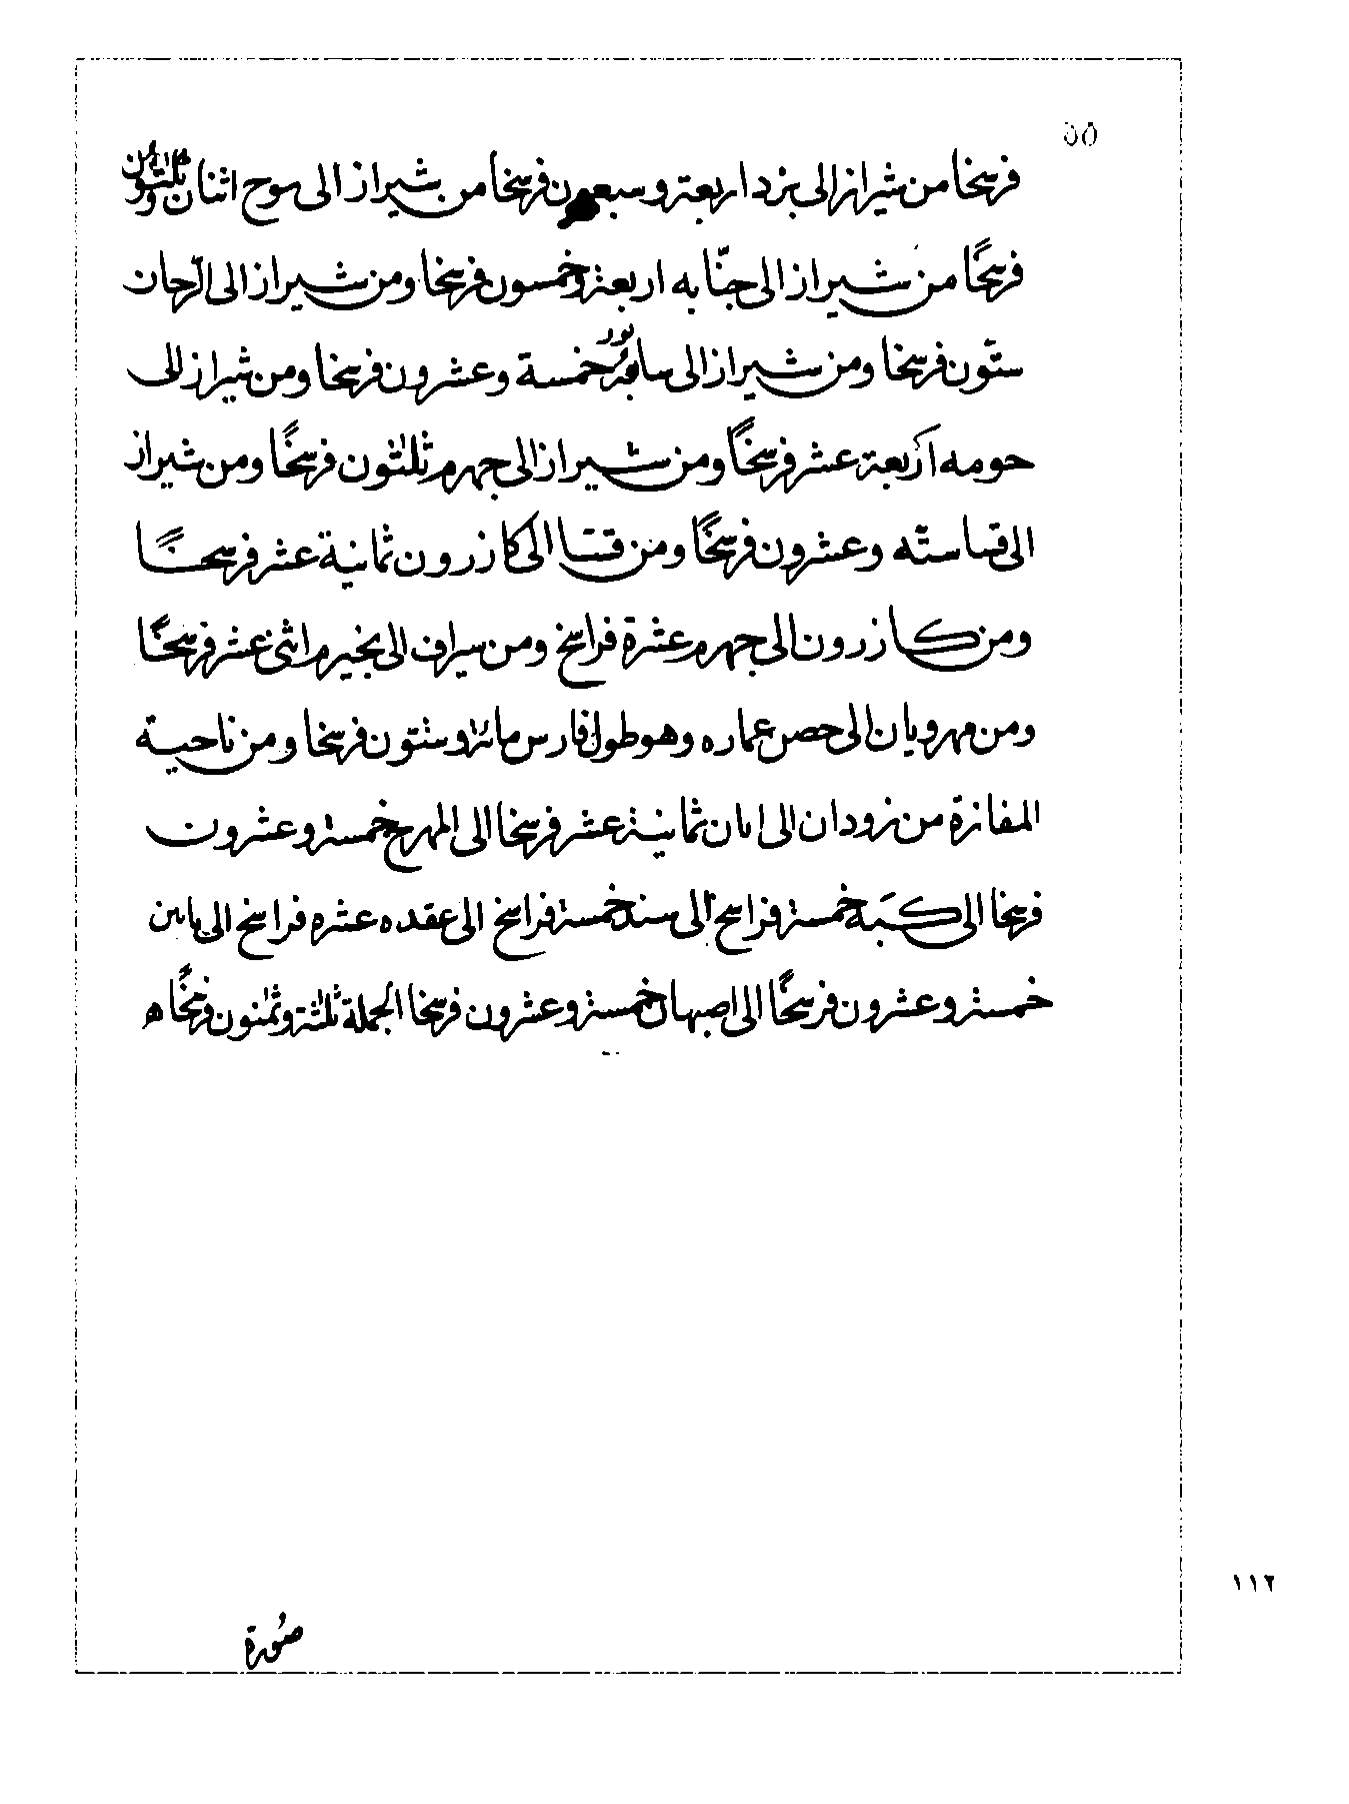 ٥٥
فرسخا من شيراز الى يزد اربعة وسبعون فرسخا من شيراز الى توج اثنان وثلثون
فرسخًا من شيراز الى جنّابه اربعة وخمسون فرسخا ومن شيراز الى الرّجان
ستّون فرسخا ومن شيراز الى سابور خمسة وعشرون فرسخا ومن شيراز الى
حومه اربعة عشر فرسخًا ومن شيراز الى جهرم ثلثون فرسخًا ومن شيراز
الى فسا ستّه وعشرون فرسخًا ومن فسا الى كازرون ثمانية عشر فرسخًا
ومن كازرون الى جهرم عشرة فراسخ ومن سيراف الى بخيرم اثنى عشر فرسخًا
ومن مهروبان الى حصن عماره وهو طول فارس مائة وستون فرسخا ومن ناحية
المفازة من زودان الى ابان ثمانية عشر فرسخا الى المهرج خمسة وعشرون
فرسخا الى كبه خمسة فراسخ الى سند خمسة فراسخ الى عقده عشره فراسخ الى نابين
خمسة وعشرون فرسخًا الى اصبهان خمسة وعشرون فرسخا الجملة ثلثة وثمنون فرسخًا ه
صُورة
١١٢